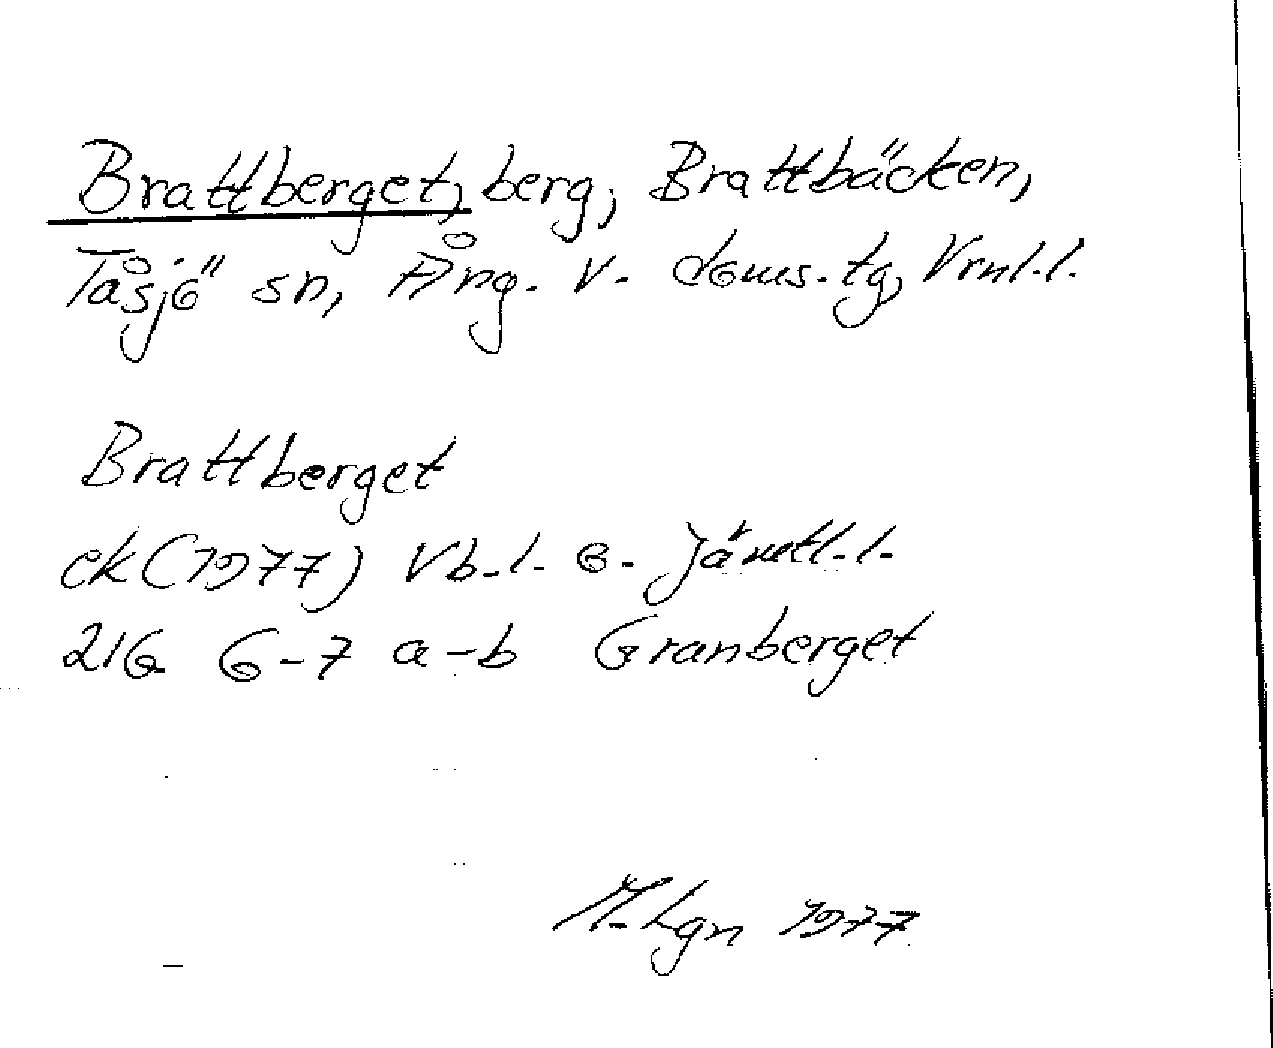 Brattberget, berg, Brattbäcken,
Tåsjö sn, Ång. v. doms. tg, Vrnl. l.
Brattberget
ek (1977) Vb. l. o. Jämtl. l.
21G 6-7 a-b Granberget
Lgn 1977